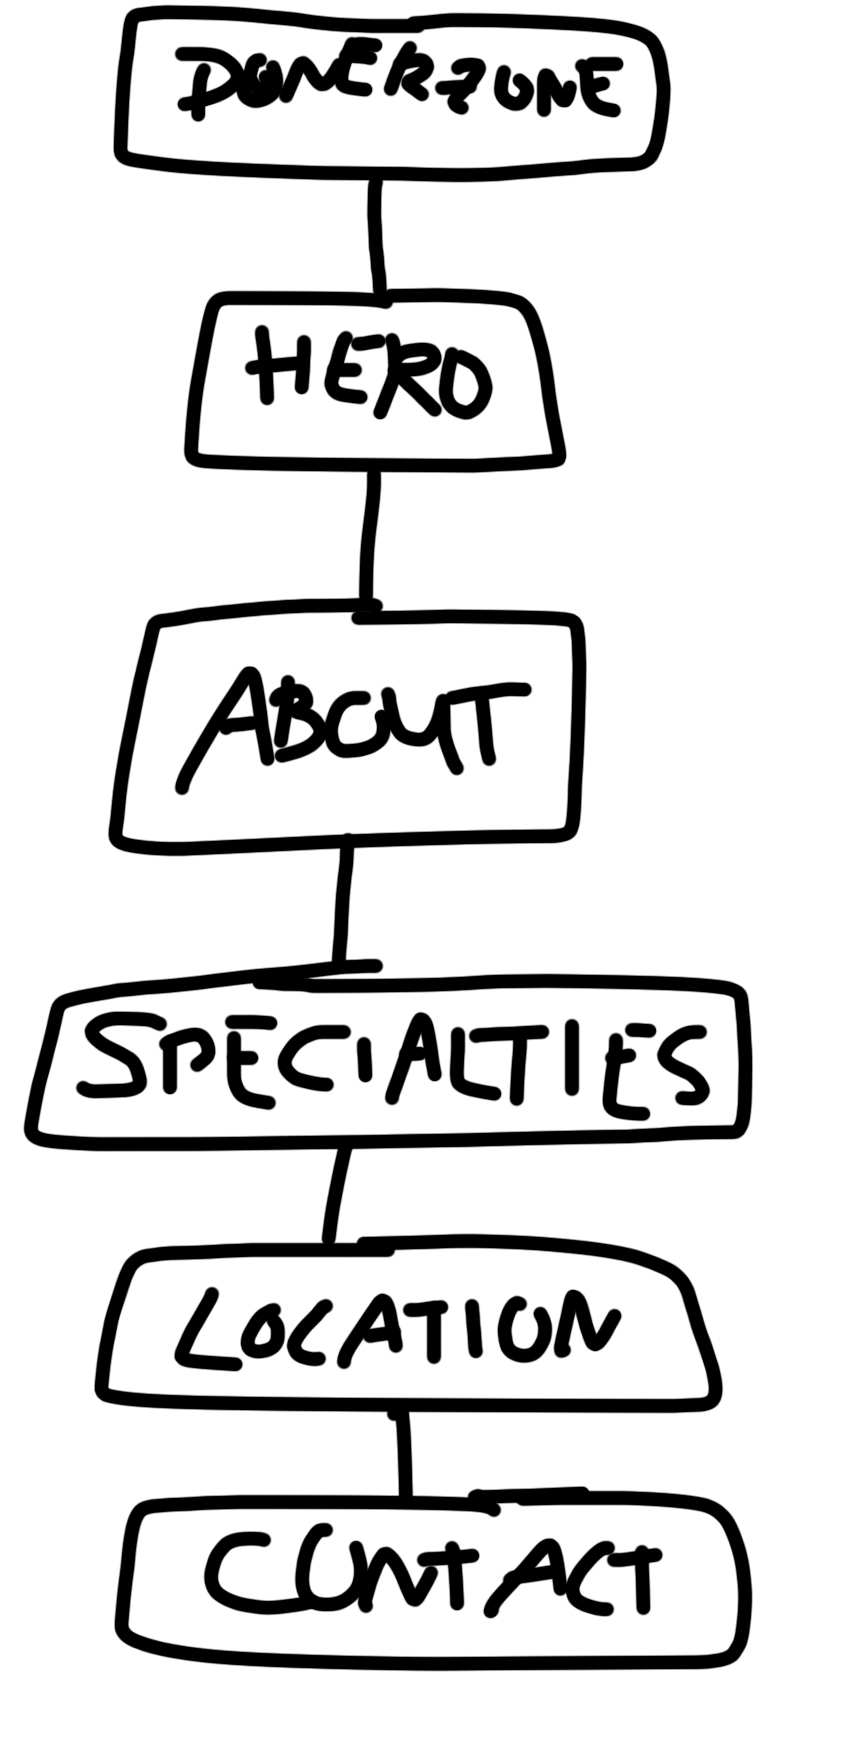 DONERZONE
HERO
ABOUT
SPECIALTIES
LOCATION
CONTACT